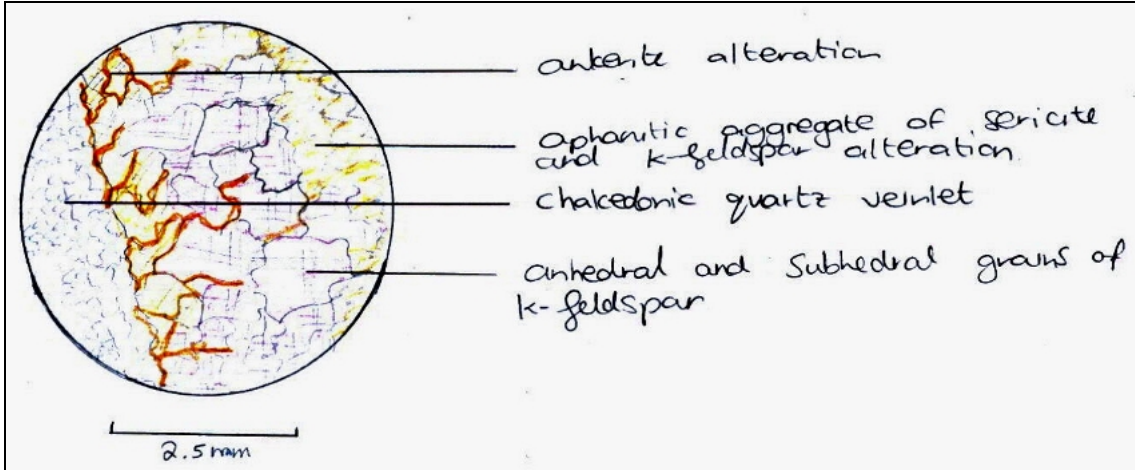 ankerite alteration
aphanitic aggregate of sericite
and K-feldspar alteration
chalcedonic quartz veinlet
anhedral and subhedral grains of
K-feldspar
2.5mm